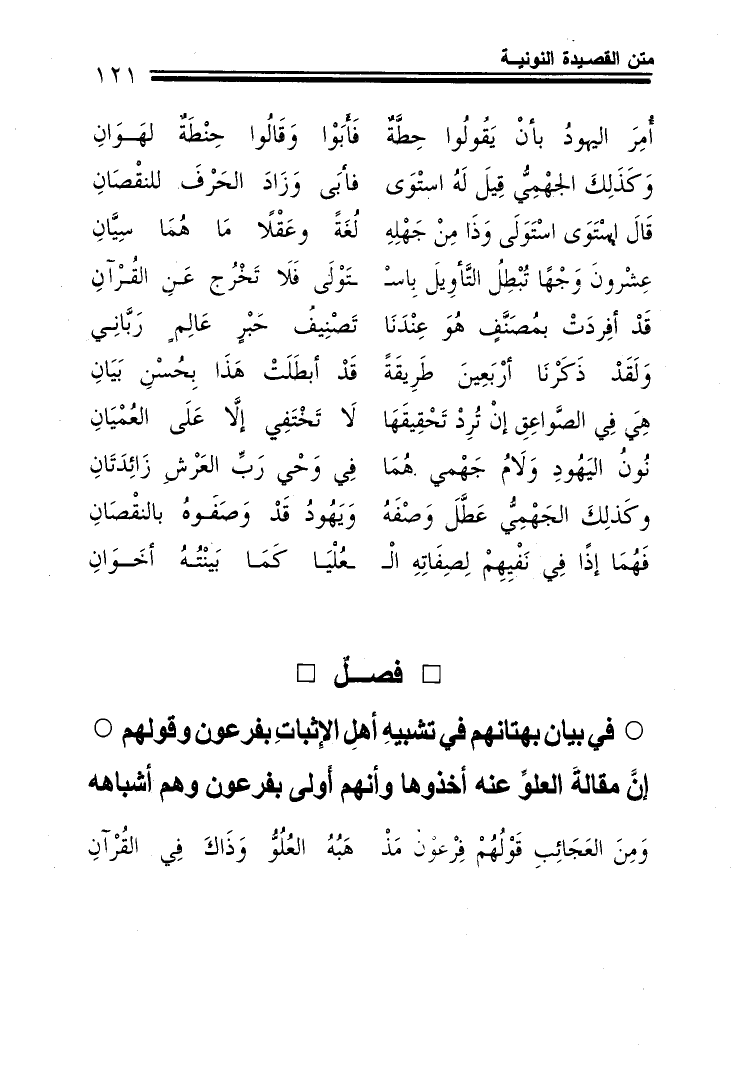 متن القصيدة النونية
١٢١
أُمِرَ اليهودُ بأنْ يَقُولُوا حِطَّةٌ فَأَبَوْا وَقَالُوا حِنْطَةٌ لهَوَانِ
وَكَذَلِكَ الجَهْمِيُّ قِيلَ لَهُ استَوَى فأبَى وَزَادَ الحَرْفَ للنقْصَانِ
قَالَ اسْتَوَى استَوْلَى وَذَا مِنْ جَهْلِهِ لُغَةً وعَقْلًا مَا هُمَا سِيَّانِ
عِشْرونَ وَجْهًا تُبْطِلُ التَّأوِيلَ بِاسـْ ـتَوْلَى فَلَا تَخْرُج عَنِ القُرْآنِ
قَدْ أفرِدَتْ بمُصَنَّفٍ هُوَ عِنْدَنَا تَصْنِيفُ حَبْرٍ عَالِمٍ رَبَّانِي
وَلَقَدْ ذَكَرْنَا أرْبَعِينَ طَرِيقَةً قَدْ أبطَلَتْ هَذَا بِحُسْنِ بَيَانِ
هِيَ فِي الصَّوَاعِقِ إنْ تُرِدْ تَحْقِيقَهَا لَا تَخْتَفِي إلَّا عَلَى العُمْيَانِ
نُونُ اليَهُودِ وَلَامُ جَهْمِي هُمَا فِي وَحْيِ رَبِّ العَرْشِ زَائِدَتَانِ
وكَذلِكَ الجَهْمِيُّ عَطَّلَ وَصْفَهُ وَيَهُودُ قَدْ وَصَفَوهُ بالنقْصَانِ
فَهُمَا إذًا فِي نَفْيِهِمْ لِصِفَاتِهِ الْـ ـعُلْيَا كَمَا بَينْتُهُ أخَوَانِ
□ فصلٌ □
○ في بيان بهتانهم في تشبيهِ أهلِ الإثباتِ بفرعون وقولهم ○
إنَّ مقالةَ العلوِّ عنه أخذوها وأنهم أَولى بفرعون وهم أشباهه
وَمِنَ العَجَائِبِ قَوْلُهُمْ فِرْعَوْنُ مَذْ هَبُهُ العُلُوُّ وَذَاكَ فِي القُرْآنِ